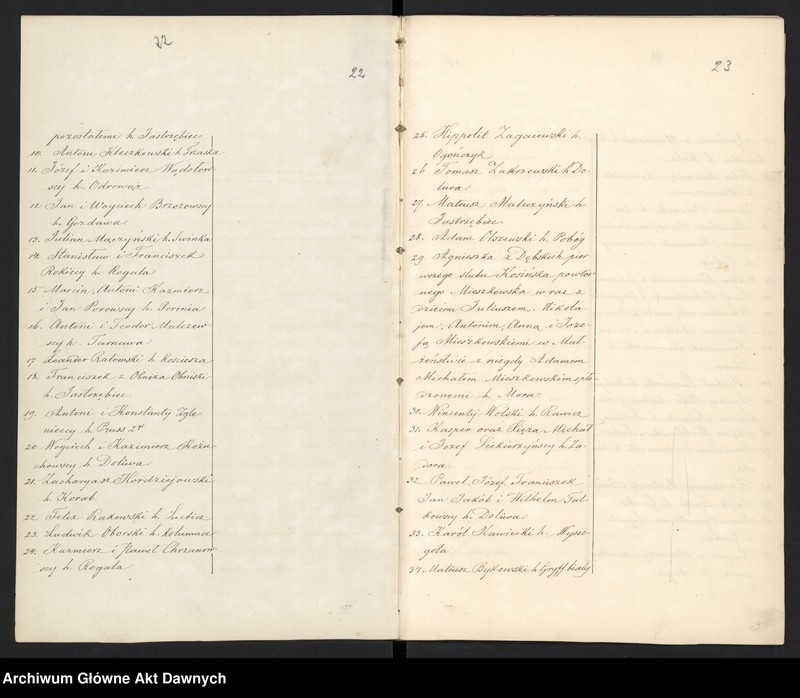 22
22
pozostałemi h. Jastrzębiec
10. Antoni Kleczkowski h. Trzaska
11. Józef i Kazimierz Wądołow-
scy h. Odrowąż
12 Jan i Woyciech Brzozowscy
h. Gozdawa
13. Julian Mączyński h. Swinka
14. Stanisław i Franciszek
Rokiccy h. Rogala
15 Marcin, Antoni Kazimierz
i Jan Porowscy h. Poronia
16. Antoni i Teodor Malczew-
scy h. Tarnawa
17 Leander Ratomski h. Kosciesza
18. Franciszek z Obniża Obniski
h. Jastrzębiec
19. Antoni i Konstanty Zgle-
niccy h. Pruss 2º
20 Woyciech i Kazimierz Kożu-
chowscy h. Doliwa
21. Zacharyasz Hordziejowski
h. Korab
22 Felix Rakowski h. Lubicz
23. Ludwik Oborski h. Kolumna
24. Kazimierz i Paweł Chrzanow-
scy h. Rogala
23
25. Hippolit Zagaiewski h.
Ogończyk
26 Tomasz Zakrzewski h. Do-
liwa
27. Mateusz Mateżyński h.
Jastrzębiec
28. Adam Olszewski h. Pobóg
29. Agnieszka z Dębskich pier-
wszego slubu Kosińska powtór-
nego Mieszkowska wraz z
dziećmi Juliuszem, Mikoła-
jem, Antonim, Anną i Joze-
fą Mieszkowskiemi w Mał-
żeństwie z niegdy Adamem
Michałem Mieszkowskim spło-
dzonemi h. Mora
30. Wincenty Wolski h. Rawicz
31. Kasper oraz Xiąża Michał
i Jozef Siekierzyńscy h. Za-
dora
32. Paweł, Józef, Franciszek
Jan Jakób i Wilhelm Fal-
kowscy h. Doliwa
33. Karól Nawiecki h. Wysso-
gota
34. Mateusz Bykowski h. Gryff biały
Archiwum Główne Akt Dawnych